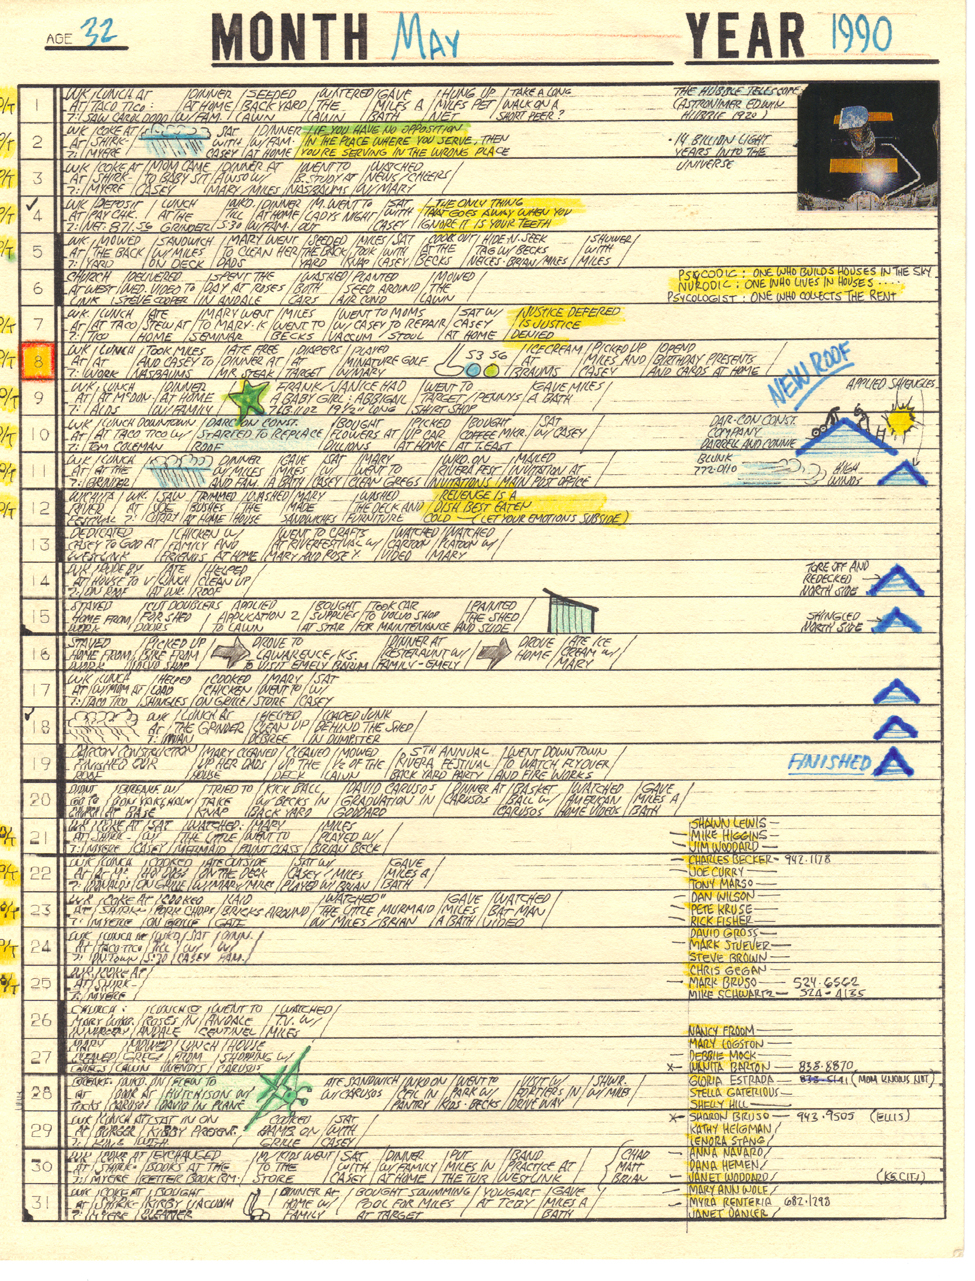 AGE 32 MONTH MAY YEAR 1990
1
WK LUNCH AT / DINNER / SEEDED / WATERED / GAVE / HUNG UP / TAKE A LONG
AT TACO TICO: / AT HOME / BACK YARD / THE / MILES A / MILES PET / WALK ON A
7: SAW CAROL DODD / W/ FAM. / LAWN / LAWN / BATH / NET / SHORT PEER?
THE HUBBLE TELESCOPE
(ASTRONIMER EDWIN
HUBBLE 1920)
2
WK COKE AT / SAT / DINNER / IF YOU HAVE NO OPPOSITION
AT SHIRK- / WITH / W/ FAM. / IN THE PLACE WHERE YOU SERVE, THEN
7: MYERE / CASEY / AT HOME / YOU'RE SERVING IN THE WRONG PLACE
14 BILLION LIGHT
YEARS INTO THE
UNIVERSE
3
WK COKE AT / MOM CAME / DINNER AT / WENT TO / WATCHED
AT SHIRK- / TO BABY SIT / B. STUDY AT / NEWS / CHEERS
7: MYERE / CASEY / MARY MILES / NASBAUMS / W/ MARY
4
WK DEPOSIT / LUNCH / WKD. / DINNER / M. WENT TO / SAT / THE ONLY THING
AT PAY CHK. / AT THE / TILL / AT HOME / LADYS NIGHT / WITH / THAT GOES AWAY WHEN YOU
7: NET: 871.56 / GRINDER / 5:30 / W/ FAM. / OUT / CASEY / IGNORE IT IS YOUR TEETH
5
WK MOWED / SANDWICH / MARY WENT / SEEDED / MILES SAT / COOK OUT / HIDE-N-SEEK / SHOWER
AT THE BACK / W/ MILES / TO CLEAN HER / THE BACK / TOOK WITH / AT THE / TAG W/ BECKS / WITH
7: YARD / ON DECK / DADS / YARD / KNAP CASEY / BECKS / NIECES-BRIAN/MILES / MILES
6
CHURCH / DELIVERED / SPENT THE / WASHED / PLANTED / MOWED
AT WEST / WED. VIDEO TO / DAY AT ROSES / BOTH / SEED AROUND / THE
LINK / STEVE COOPER / IN ANDALE / CARS / AIR COND / LAWN
PSYCODIC: ONE WHO BUILDS HOUSES IN THE SKY
NURODIC: ONE WHO LIVES IN HOUSES ....
PSYCOLOGIST: ONE WHO COLLECTS THE RENT
7
WK LUNCH / ATE / MARY WENT / MILES / WENT TO MOMS / SAT W/ / JUSTICE DEFERED
AT AT TACO / STEW AT / TO MARY-K / WENT TO / W/ CASEY TO REPAIR / CASEY / IS JUSTICE
7: TICO / HOME / SEMINAR / BECKS / VACCUM / STOUL / AT HOME / DENNIED
8
WK / LUNCH / TOOK MILES / ATE FREE / DIAPERS / PLAYED / 53 56 / ICECREAM / PICKED UP / OPEND
AT AT / AND CASEY TO / DINNER AT / AT / MINATURE GOLF / AT / MILES AND / BIRTHDAY PRESENTS
7: WORK / NASBAUMS / MR. STEAK / TARGET / W/ MARY / BRAUMS / CASEY / AND CARDS AT HOME
NEW ROOF
9
WK LUNCH / DINNER / FRANK/JANICE HAD / WENT TO / GAVE MILES
AT AT MCDON- / AT HOME / A BABY GIRL: ABBIGAIL / TARGET / PENNYS / A BATH
7: ALDS / W/ FAMILY / 7LB. 11 OZ 19 1/2" LONG / SHIRT SHOP
APPLIED SHENGLES
10
WK LUNCH DOWNTOWN / DARCON CONST. / BOUGHT / PICKED / BOUGHT / SAT
AT AT TACO TICO W/ / STARTED TO REPLACE / FLOWERS AT / UP CAR / COFFEE MKR. / W/ CASEY
7: TOM COLEMAN / ROOF / DILLIONS / AT HOME / AT TEAST
DAR-CON CONST.
COMPANY
DARRELL AND CONNIE
11
WK LUNCH / DINNER / GAVE / SAT / MARY / WKD. ON / MAILED
AT AT THE / W/ MILES / MIKES W/ / WENT TO / RIVERA FEST / INVITATION AT
7: GRINDER / AND FAM. / A BATH / CASEY / CLEAN GREGS / INVITATIONS / MAIN POST OFFICE
BLUNK
772-0110
HIGH
WINDS
12
WICHITA / WK / SAW / TRIMMED / WASHED / MARY / WASHED / REVENGE IS A
RIVER / AT JOE / BUSHES / THE / MADE / THE DECK AND / DISH BEST EATEN
FESTIVAL 7: / CURBY / AT HOME / HOUSE / SANDWICHS / FURNITURE / COLD — (LET YOUR EMOTIONS SUBSIDE)
13
DEDICATED / CHICKEN W/ / WENT TO CRAFTS / WATCHED / WATCHED
CASEY TO GOD AT / FAMILY AND / AT RIVERFESTIVAL W/ / CARTOON / PLATOON W/
WESTLINK / FRIENDS AT HOME / MARY AND ROSE Y. / VIDEO / MARY
14
WK / ATE / HELPED
AT HOUSE TO / LUNCH / CLEAN UP
7: ON ROOF / AT WK / ROOF
TORE OFF AND
REDECKED
NORTH SIDE
15
STAYED / CUT DOUBLERS / APPLIED / BOUGHT / TOOK CAR / PAINTED
HOME FROM / FOR SHED / APPLICATION 2 / SUPPLIES / TO VOLVO SHOP / THE SHED
WORK / DOORS / TO LAWN / AT STAR / FOR MAINTENANCE / AND SLIDE
SHINGLED
NORTH SIDE
16
STAYED / PICKED UP / DROVE TO / DINNER AT / DROVE / ATE ICE
HOME FROM / BIKE FROM / LAWRENCE, KS. / RESTERAUNT W/ / HOME / CREAM W/
WORK / VOLVO SHOP / TO VISIT EMELY BARUM / FAMILY-EMELY / MARY
17
WK LUNCH / HELPED / COOKED / MARY / SAT
AT W/ MOM AT / LOAD / CHICKEN / WENT TO / W/
7: TACO TICO / SHINGLES / ON GRILLE / STORE / CASEY
18
WK / LUNCH AT / HELPED / LOADED JUNK
AT / THE GRINDER / CLEAN UP / BEHIND THE SHED
7: / W/ DAN / DEBREE / IN DUMPSTER
19
DARCON CONSTRUCTION / MARY CLEANED / CLEANED / MOWED / 5TH ANNUAL / WENT DOWNTOWN
FINISHED OUR / UP HER DADS / UP THE / 1/2 OF THE / RIVERA FESTIVAL / TO WATCH FLYOVER
ROOF / HOUSE / DECK / LAWN / BACK YARD PARTY / AND FIRE WORKS
FINISHED
20
DIDNT / BREAK W/ / TRIED TO / KICK BALL / DAVID CARUSOS / DINNER AT / BASKET / WATCHED / GAVE
GO TO / TAKE / W/ BECKS IN / GRADUATION IN / CARUSOS / BALL W/ / AMERICAN / MILES A
CHURCH / AT BASE / KNAP / BACK YARD / GODDARD / CARUSOS / HOME VIDEOS / BATH
21
WK / COKE AT / SAT / WATCHED / MARY / MILES
AT SHIRK- / W/ / THE LITTLE / WENT TO / PLAYED W/
7: MYERE / CASEY / MERMAID / PAINT CLASS / BRIAN BECK
SHAWN LEWIS
MIKE HIGGINS
JIM WOODARD
22
WK / LUNCH / COOKED / ATE OUTSIDE / SAT W/ / GAVE
AT AT MC- / HOT DOGS / ON THE DECK / CASEY / MILES / MILES A
7: DONALDS / ON GRILLE / W/ MARY/MILES / PLAYED W/ BRIAN / BATH
CHARLES BECKER - 942-1178
JOE CURRY
TONY MARSO
23
WK / COKE AT / COOKED / LAID / WATCHED" / GAVE / WATCHED
AT / SHIRK- / PORK CHOPS / BRICKS AROUND / THE LITTLE MURMAID / MILES / BAT MAN
7: / MYERE / ON GRILLE / GATE / W/ MILES/BRIAN / A BATH / VIDEO
DAN WILSON
PETE KRUSE
RICK FISHER
24
WK / LUNCH AT / WKD / SAT / DINN.
AT / TACO TICO / TILL / W/ / W/
7: / DNTOWN / 5:30 / CASEY / FAM.
DAVID GROSS
MARK STUEVER
STEVE BROWN
25
WK / COKE AT
AT / SHIRK-
7: / MYERE
CHRIS GEGAN
MARK BRUSO — 524-6562
MIKE SCHWARTZ — 524-4135
26
CHURCH: / LUNCH @ / WENT TO / WATCHED
MARY WKD. / ROSES IN / ANDALE / T.V. W/
IN NURSERY / ANDALE / CENTINEL / MILES
27
MARY / MOWED / LUNCH / HOUSE
CLEANED / GREGS / FROM / SHOPPING W/
GREGS / LAWN / WENDYS / CARUSOS
NANCY FROOM
MARY LOGSTON
DEBBIE MOCK
X- WANITA BARTON — 838-8870
28
BREAK- / WKD. ON / FLEW TO / ATE SANDWICH / WKD ON / WENT TO / VISIT W/ / SHWR.
AT / DOOR AT / HUTCHISON W/ / W/ CARUSOS / CEIL IN / PARK W/ / PORTIERS IN / W/ MILES
TOCKS / CARUSOS / DAVID IN PLANE / PANTRY / KIDS-BECKS / DRIVE WAY
GLORIA ESTRADA (MOM KNOWS HER)
STELLA GATERIOUS
SHELLY HILL
29
WK / LUNCH AT / SAT IN ON / COOKED / SAT
AT BURGER / KIRBY PRESENT. / BRATS ON / WITH
7: KING / WITH / GRILLE / CASEY
X- SHARON BRUSO — 943-9505 (ELLIS)
KATHY HEIGMAN
LENORA STANG
30
WK / COKE AT / EXCHANGED / M/ KIDS WENT / SAT / DINNER / PUT / BAND / CHAD
AT / SHIRK- / BOOKS AT THE / TO THE / WITH / W/ FAMILY / MILES IN / PRACTICE AT / MATT
7: / MYERE / BETTER BOOK RM. / STORE / CASEY / AT HOME / THE TUB / WESTLINK / BRIAN
ANNA NAVARO
DANA HEMEN
JANET WODDARD (KS. CITY)
31
WK / COKE AT / BOUGHT / DINNER AT / BOUGHT SWIMMING / YOUGART / GAVE
AT / SHIRK- / KIRBY VACUUM / HOME W/ / POOL FOR MILES / AT TCBY / MILES A
7: / MYERE / CLEANER / FAMILY / AT TARGET / BATH
MARY ANN WOLF
MYRA RENTERIA 682-1298
JANET DANLER